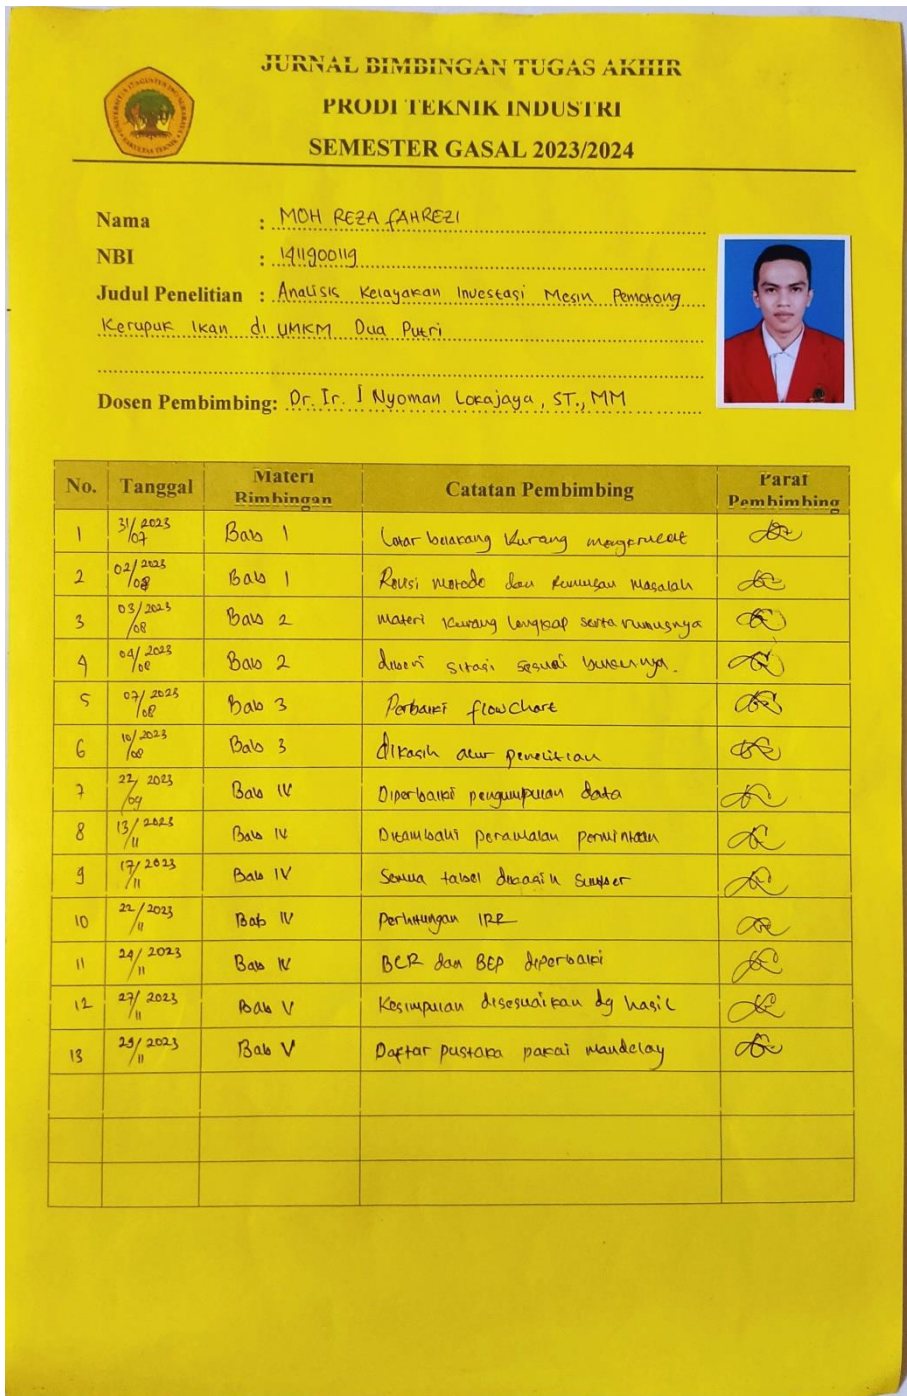 JURNAL BIMBINGAN TUGAS AKHIR
PRODI TEKNIK INDUSTRI
SEMESTER GASAL 2023/2024
Nama : MOH REZA FAHREZI
NBI : 1411900119
Judul Penelitian : Analisis Kelayakan Investasi Mesin Pemotong
Kerupuk Ikan di UMKM Dua Putri
Dosen Pembimbing: Dr. Ir. I Nyoman Lokajaya, ST., MM
No. Tanggal Materi Bimbingan Catatan Pembimbing Paraf Pembimbing
1 31/07 2023 Bab 1 Latar belakang kurang mengerucut
2 02/08 2023 Bab 1 Revisi metode dan Rumusan Masalah
3 03/08 2023 Bab 2 materi kurang lengkap serta rumusnya
4 04/08 2023 Bab 2 diberi sitasi sesuai
5 07/08 2023 Bab 3 Perbaiki flowchart
6 10/08 2023 Bab 3 dikasih alur penelitian
7 22/09 2023 Bab IV Diperbaiki pengumpulan data
8 13/11 2023 Bab IV Ditambahi peramalan permintaan
9 17/11 2023 Bab IV Semua tabel dikasih sumber
10 22/11 2023 Bab IV Perhitungan IRR
11 24/11 2023 Bab IV BCR dan BEP diperbaiki
12 27/11 2023 Bab V Kesimpulan disesuaikan dg hasil
13 29/11 2023 Bab V Daftar pustaka pakai mandelay